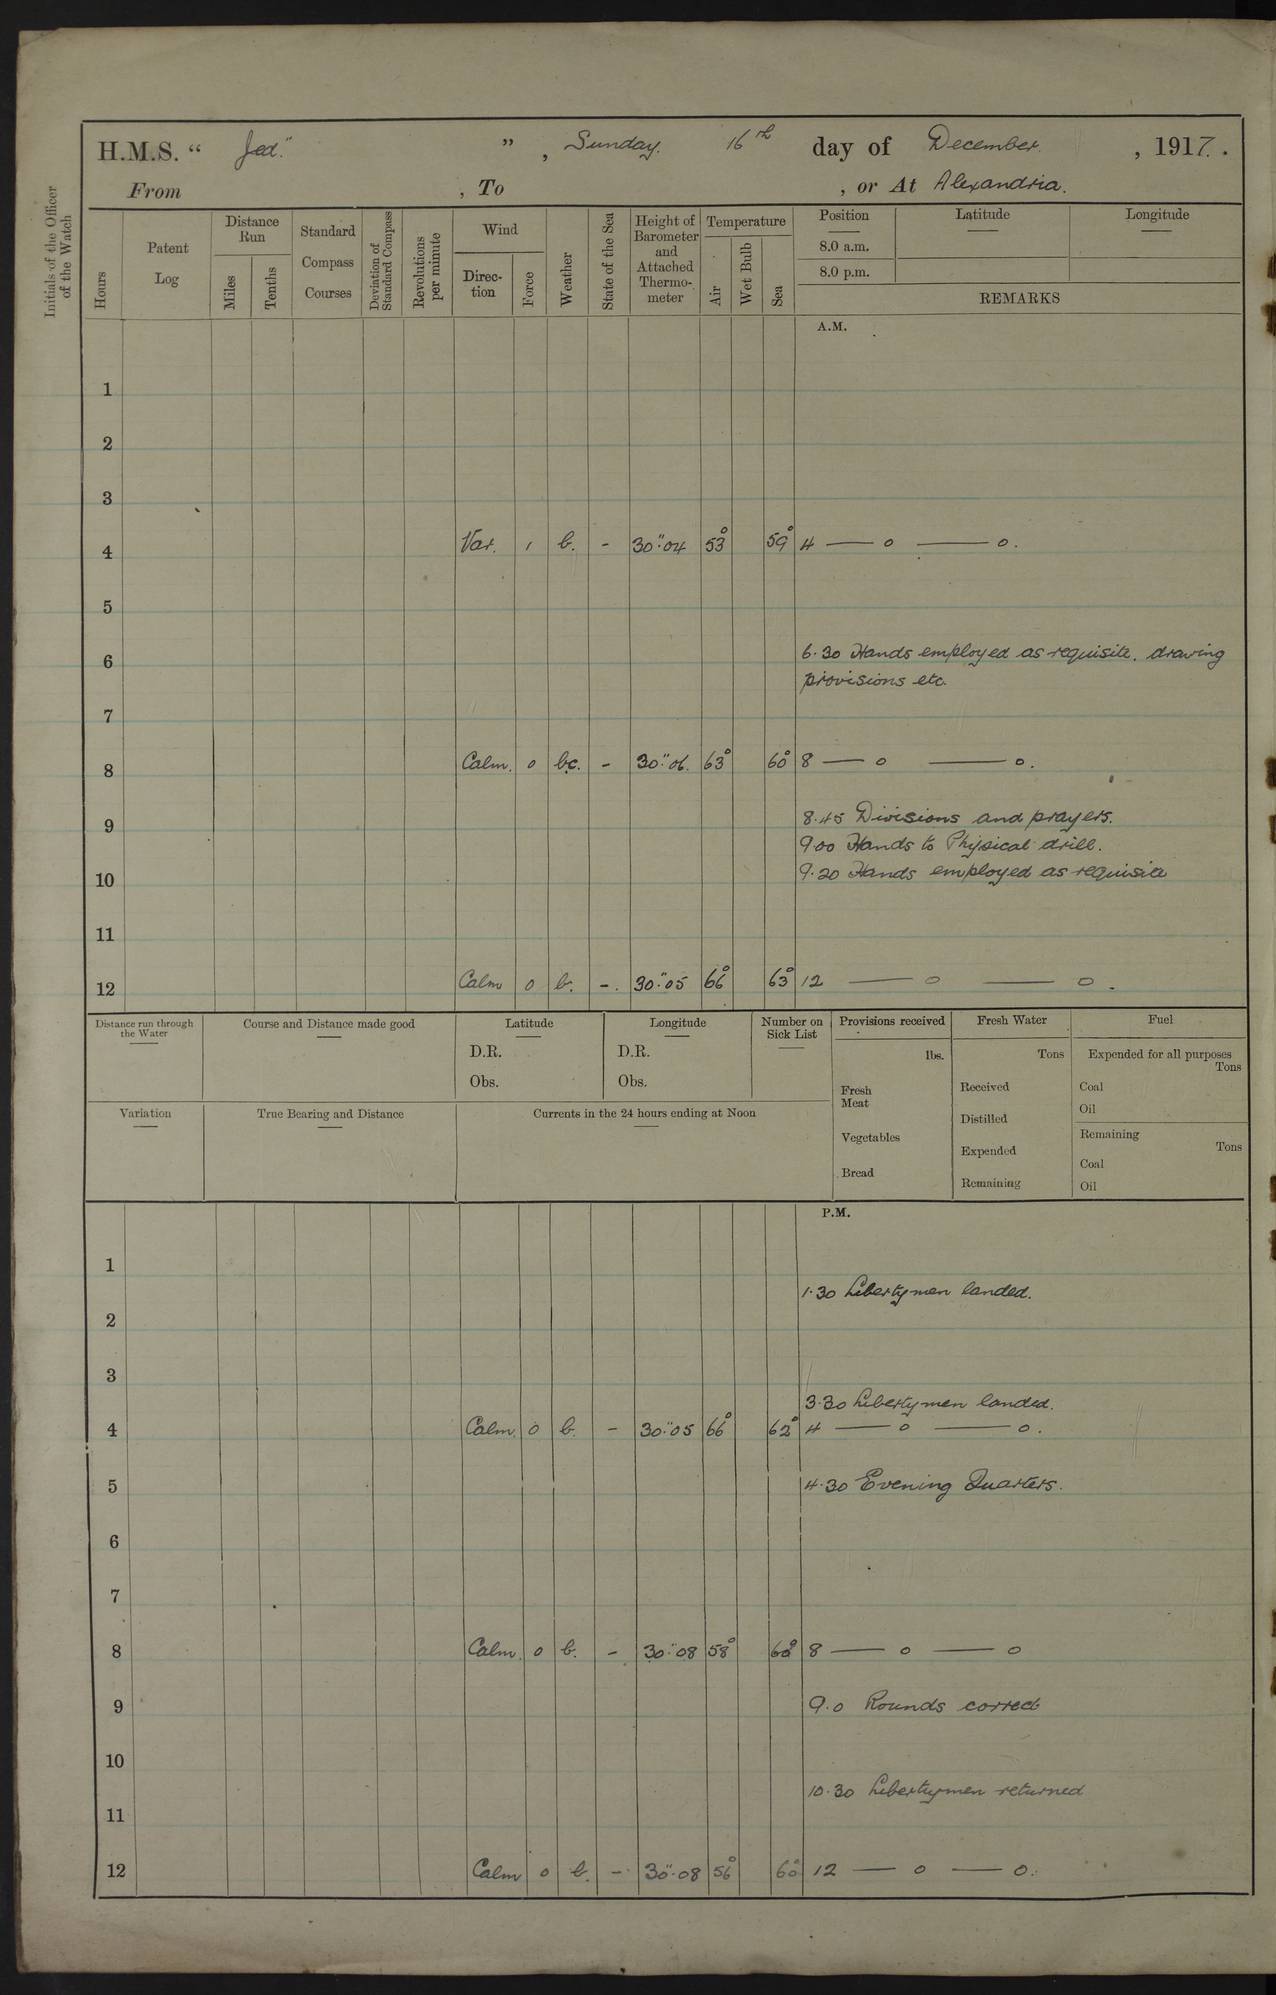 H.M.S. “ Jed. ” , Sunday. 16th day of December , 1917.
From , To , or At Alexandria.
Initials of the Officer of the Watch
Hours
Patent Log
Distance Run
Miles
Tenths
Standard Compass Courses
Deviation of Standard Compass
Revolutions per minute
Wind
Direc-tion
Force
Weather
State of the Sea
Height of Barometer and Attached Thermo-meter
Temperature
Air
Wet Bulb
Sea
Position
8.0 a.m.
8.0 p.m.
Latitude
Longitude
REMARKS
A.M.
1
2
3
4 Var. 1 b. - 30".04 53° 59° 4 — o — o.
5
6 6.30 Hands employed as requisite. drawing
provisions etc.
7
8 Calm. 0 bc. - 30".06. 63° 60° 8 — o — o.
9 8.45 Divisions and prayers.
9.00 Hands to Physical drill.
10 9.20 Hands employed as requisite
11
12 Calm 0 b. -. 30".05 66° 63° 12 — o — o.
Distance run through the Water
Course and Distance made good
Latitude
D.R.
Obs.
Longitude
D.R.
Obs.
Number on Sick List
Provisions received
lbs.
Fresh Meat
Vegetables
Bread
Fresh Water
Tons
Received
Distilled
Expended
Remaining
Fuel
Expended for all purposes
Tons
Coal
Oil
Remaining
Tons
Coal
Oil
Variation
True Bearing and Distance
Currents in the 24 hours ending at Noon
P.M.
1
1.30 Libertymen landed.
2
3
3.30 Libertymen landed.
4 Calm. 0 b. - 30".05 66° 62° 4 — o — o.
5 4.30 Evening Quarters.
6
7
8 Calm. 0 b. - 30".08 58° 60° 8 — o — o
9 9.0 Rounds correct
10
10.30 Libertymen returned
11
12 Calm 0 b. - 30".08 56° 60° 12 — o — o.